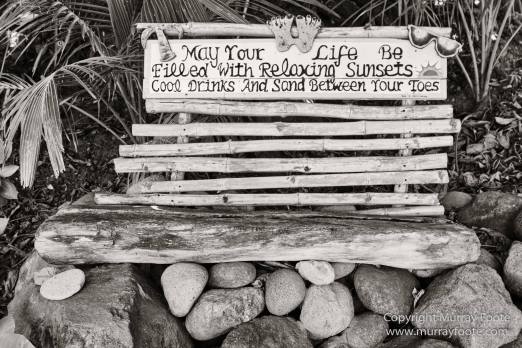 May Your Life Be
Filled With Relaxing Sunsets
Cool Drinks And Sand Between Your Toes
Copyright Murray Foote
www.murrayfoote.com